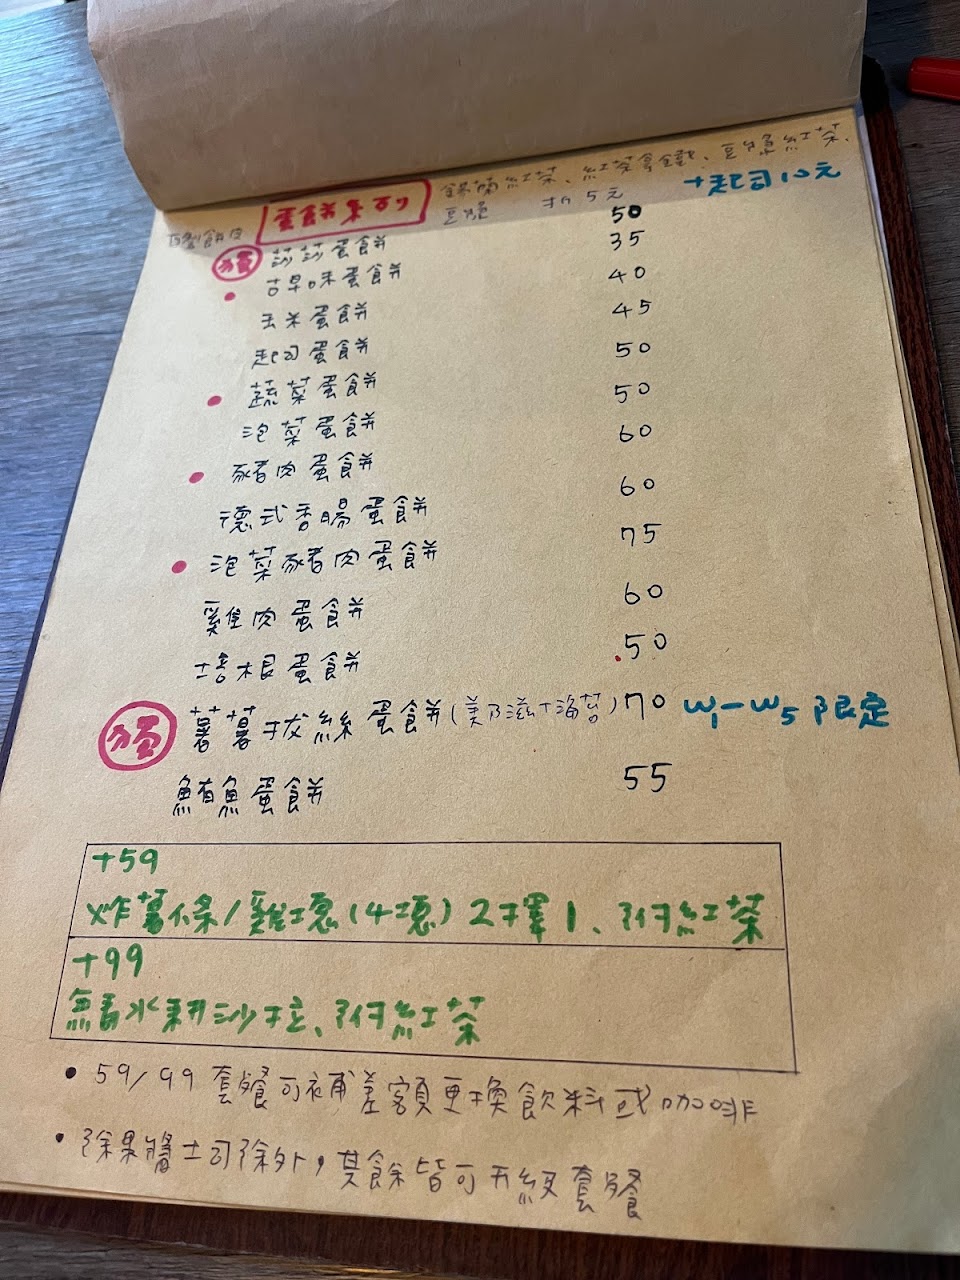 錫蘭紅茶、紅茶拿鐵、豆漿紅茶、
豆漿 折5元 +起司10元
蛋餅系列
自製餅皮
獨 莎莎蛋餅 50
古早味蛋餅 35
玉米蛋餅 40
起司蛋餅 45
蔬菜蛋餅 50
泡菜蛋餅 50
豬肉蛋餅 60
德式香腸蛋餅 60
泡菜豬肉蛋餅 75
雞肉蛋餅 60
培根蛋餅 50
獨 薯薯拔絲蛋餅(美乃滋+海苔) 70 W1-W5限定
鮪魚蛋餅 55
+59
炸薯條/雞塊(4塊)2擇1、附紅茶
+99
無毒水耕沙拉、附紅茶
• 59/99套餐可補差額更換飲料或咖啡
• 除果醬土司除外,其餘皆可升級套餐